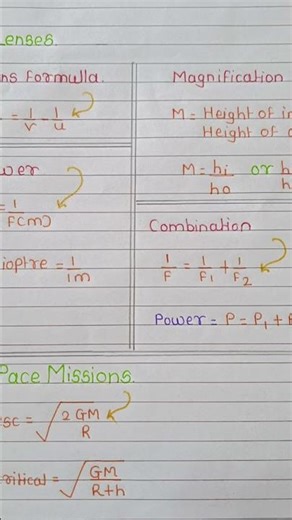 Lenses.
ns Formulla.
= 1/v - 1/u
wer
= 1/F(m)
ioptre = 1/1m
Magnification
M = Height of i
Height of
M = hi/ho or h/h
Combination
1/F = 1/F1 + 1/F2
Power = P = P1 + P
Pace Missions.
sc = √2GM/R
ritical = √GM/R+h